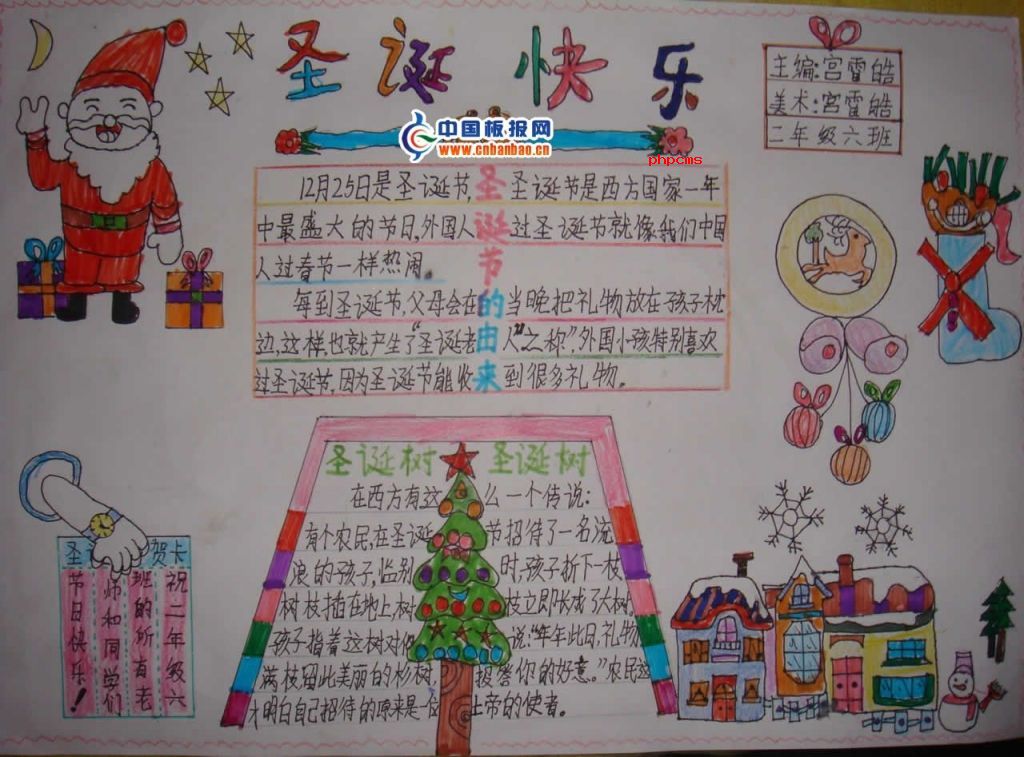 圣诞快乐
中国板报网
www.cnbanbao.cn
phpcms
主编:宫雷皓
美术:宫雷皓
二年级六班
圣诞节的由来
12月25日是圣诞节,圣诞节是西方国家一年
中最盛大的节日,外国人过圣诞节就像我们中国
人过春节一样热闹。
每到圣诞节,父母会在当晚把礼物放在孩子枕
边,这样,也就产生了“圣诞老人”之称”,外国小孩特别喜欢
过圣诞节,因为圣诞节能收到很多礼物。
圣诞树 圣诞树
在西方有这么一个传说:
有个农民,在圣诞节招待了一名流
浪的孩子,临别时,孩子折下一枝
树枝插在地上,树枝立即长成了大树
孩子指着这树对他说:“年年此日,礼物
满枝,留此美丽的杉树,报答你的好意。”农民这
才明白自己招待的原来是一位上帝的使者。
圣 贺卡
祝二年级六
班的所有老
师和同学们
节日快乐!